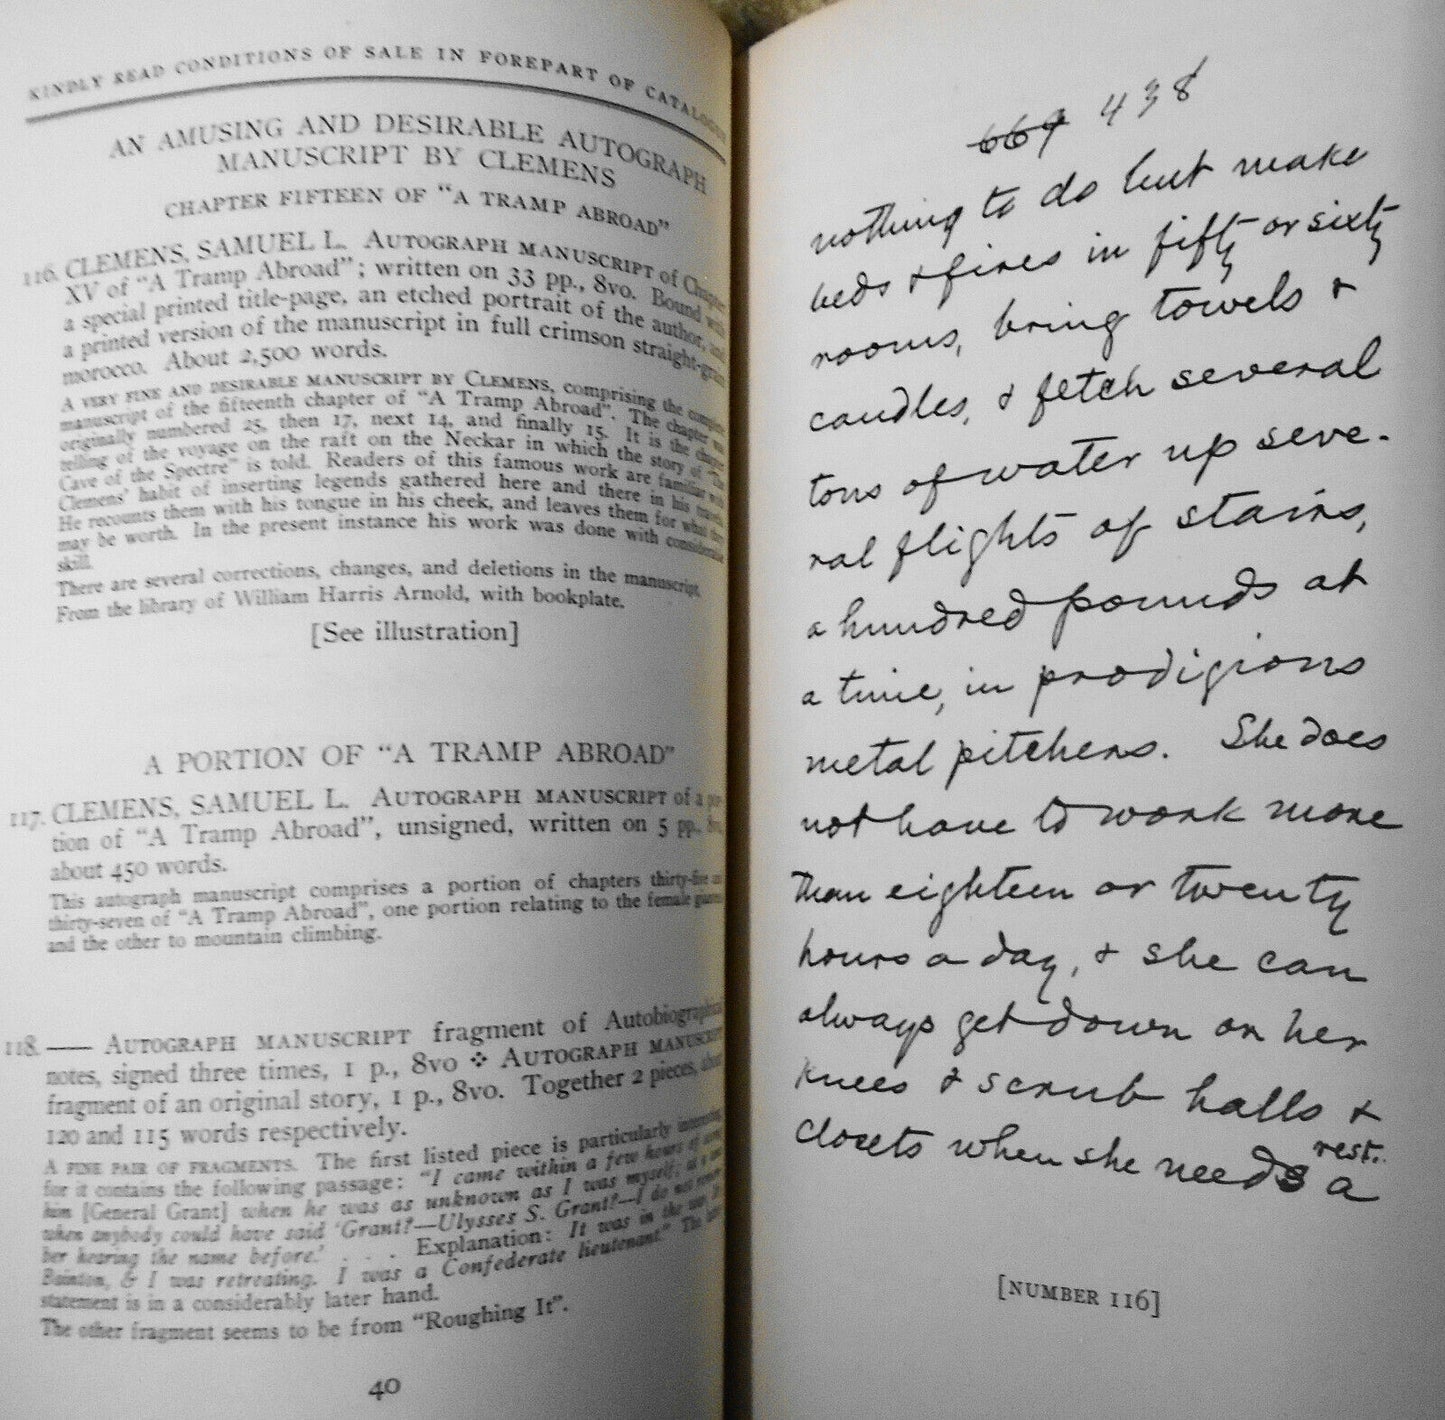 KINDLY READ CONDITIONS OF SALE IN FOREPART OF CATALOGUE
AN AMUSING AND DESIRABLE AUTOGRAPH
MANUSCRIPT BY CLEMENS
CHAPTER FIFTEEN OF "A TRAMP ABROAD"
116. CLEMENS, SAMUEL L. AUTOGRAPH MANUSCRIPT of Chapter
XV of "A Tramp Abroad"; written on 33 pp., 8vo. Bound with
a special printed title-page, an etched portrait of the author, and
a printed version of the manuscript in full crimson straight-grain
morocco. About 2,500 words.
A VERY FINE AND DESIRABLE MANUSCRIPT BY CLEMENS, comprising the complete
manuscript of the fifteenth chapter of "A Tramp Abroad". The chapter was
originally numbered 25, then 17, next 14, and finally 15. It is the chapter
telling of the voyage on the raft on the Neckar in which the story of "The
Cave of the Spectre" is told. Readers of this famous work are familiar with
Clemens' habit of inserting legends gathered here and there in his travels.
He recounts them with his tongue in his cheek, and leaves them for what they
may be worth. In the present instance his work was done with considerable
skill.
There are several corrections, changes, and deletions in the manuscript.
From the library of William Harris Arnold, with bookplate.
[See illustration]
A PORTION OF "A TRAMP ABROAD"
117. CLEMENS, SAMUEL L. AUTOGRAPH MANUSCRIPT of a por-
tion of "A Tramp Abroad", unsigned, written on 5 pp., 8vo,
about 450 words.
This autograph manuscript comprises a portion of chapters thirty-five and
thirty-seven of "A Tramp Abroad", one portion relating to the female giantess
and the other to mountain climbing.
118. —— AUTOGRAPH MANUSCRIPT fragment of Autobiographical
notes, signed three times, 1 p., 8vo ❖ AUTOGRAPH MANUSCRIPT
fragment of an original story, 1 p., 8vo. Together 2 pieces, about
120 and 115 words respectively.
A FINE PAIR OF FRAGMENTS. The first listed piece is particularly interesting
for it contains the following passage: "I came within a few hours of
him [General Grant] when he was as unknown as I was myself; at a
when anybody could have said 'Grant?—Ulysses S. Grant?—I do not remem-
ber hearing the name before.' . . . Explanation: It was in the war, I
& I was retreating. I was a Confederate lieutenant." The
statement is in a considerably later hand.
The other fragment seems to be from "Roughing It".
40
669 438
nothing to do but make
beds & fires in fifty or sixty
rooms, bring towels &
candles, & fetch several
tons of water up seve-
ral flights of stairs,
a hundred pounds at
a time, in prodigious
metal pitchers. She does
not have to work more
than eighteen or twenty
hours a day, & she can
always get down on her
knees & scrub halls &
closets when she needs a rest.
[NUMBER 116]